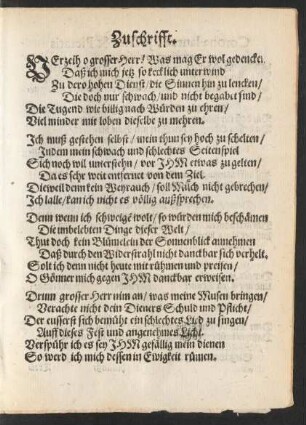 Zuschrifft.
VErzeih o grosser Herr! Was mag Er wol gedencken
Daß ich mich jetz so kecklich unterwind
Zu dero hohen Dienst/ die Sinnen hin zu lencken/
Die doch nur schwach/ und nicht begabet sind/
Die Tugend wie billig nach Würden zu ehren/
Viel minder mit loben dieselbe zu mehren.
Ich muß gestehen selbst/ mein thun sey hoch zu schelten/
Indem mein schwach und schlechtes Seitenspiel
Sich noch wil unterstehn/ vor JHM etwas zu gelten/
Da es sehr weit entfernet von dem Ziel.
Dieweil denn kein Weyrauch/ soll Mäuch nicht gebrechen/
Ich lalle/ kan ich nicht es völlig außsprechen.
Denn wenn ich schweige wolt/ so würden mich beschämen
Die unbelebten Dinge dieser Welt/
Thut doch kein Blümelein der Sonnenblick annehmen
Daß durch den Widerstrahl nicht danckbar sich verhelt.
Solt ich denn nicht heute mit rühmen und preisen/
O Gönner mich gegen JHM danckbar erweisen.
Drum grosser Herr nim an/ was meine Musen bringen/
Verachte nicht dein Dieners Schuld und Pflicht/
Der eusserst sich bemüht ein schlechtes Lied zu singen/
Auff dieses Fest und angenehmes Licht.
Verspühr ich es sey JHM gefällig mein dienen
So werd ich mich dessen in Ewigkeit rümen.